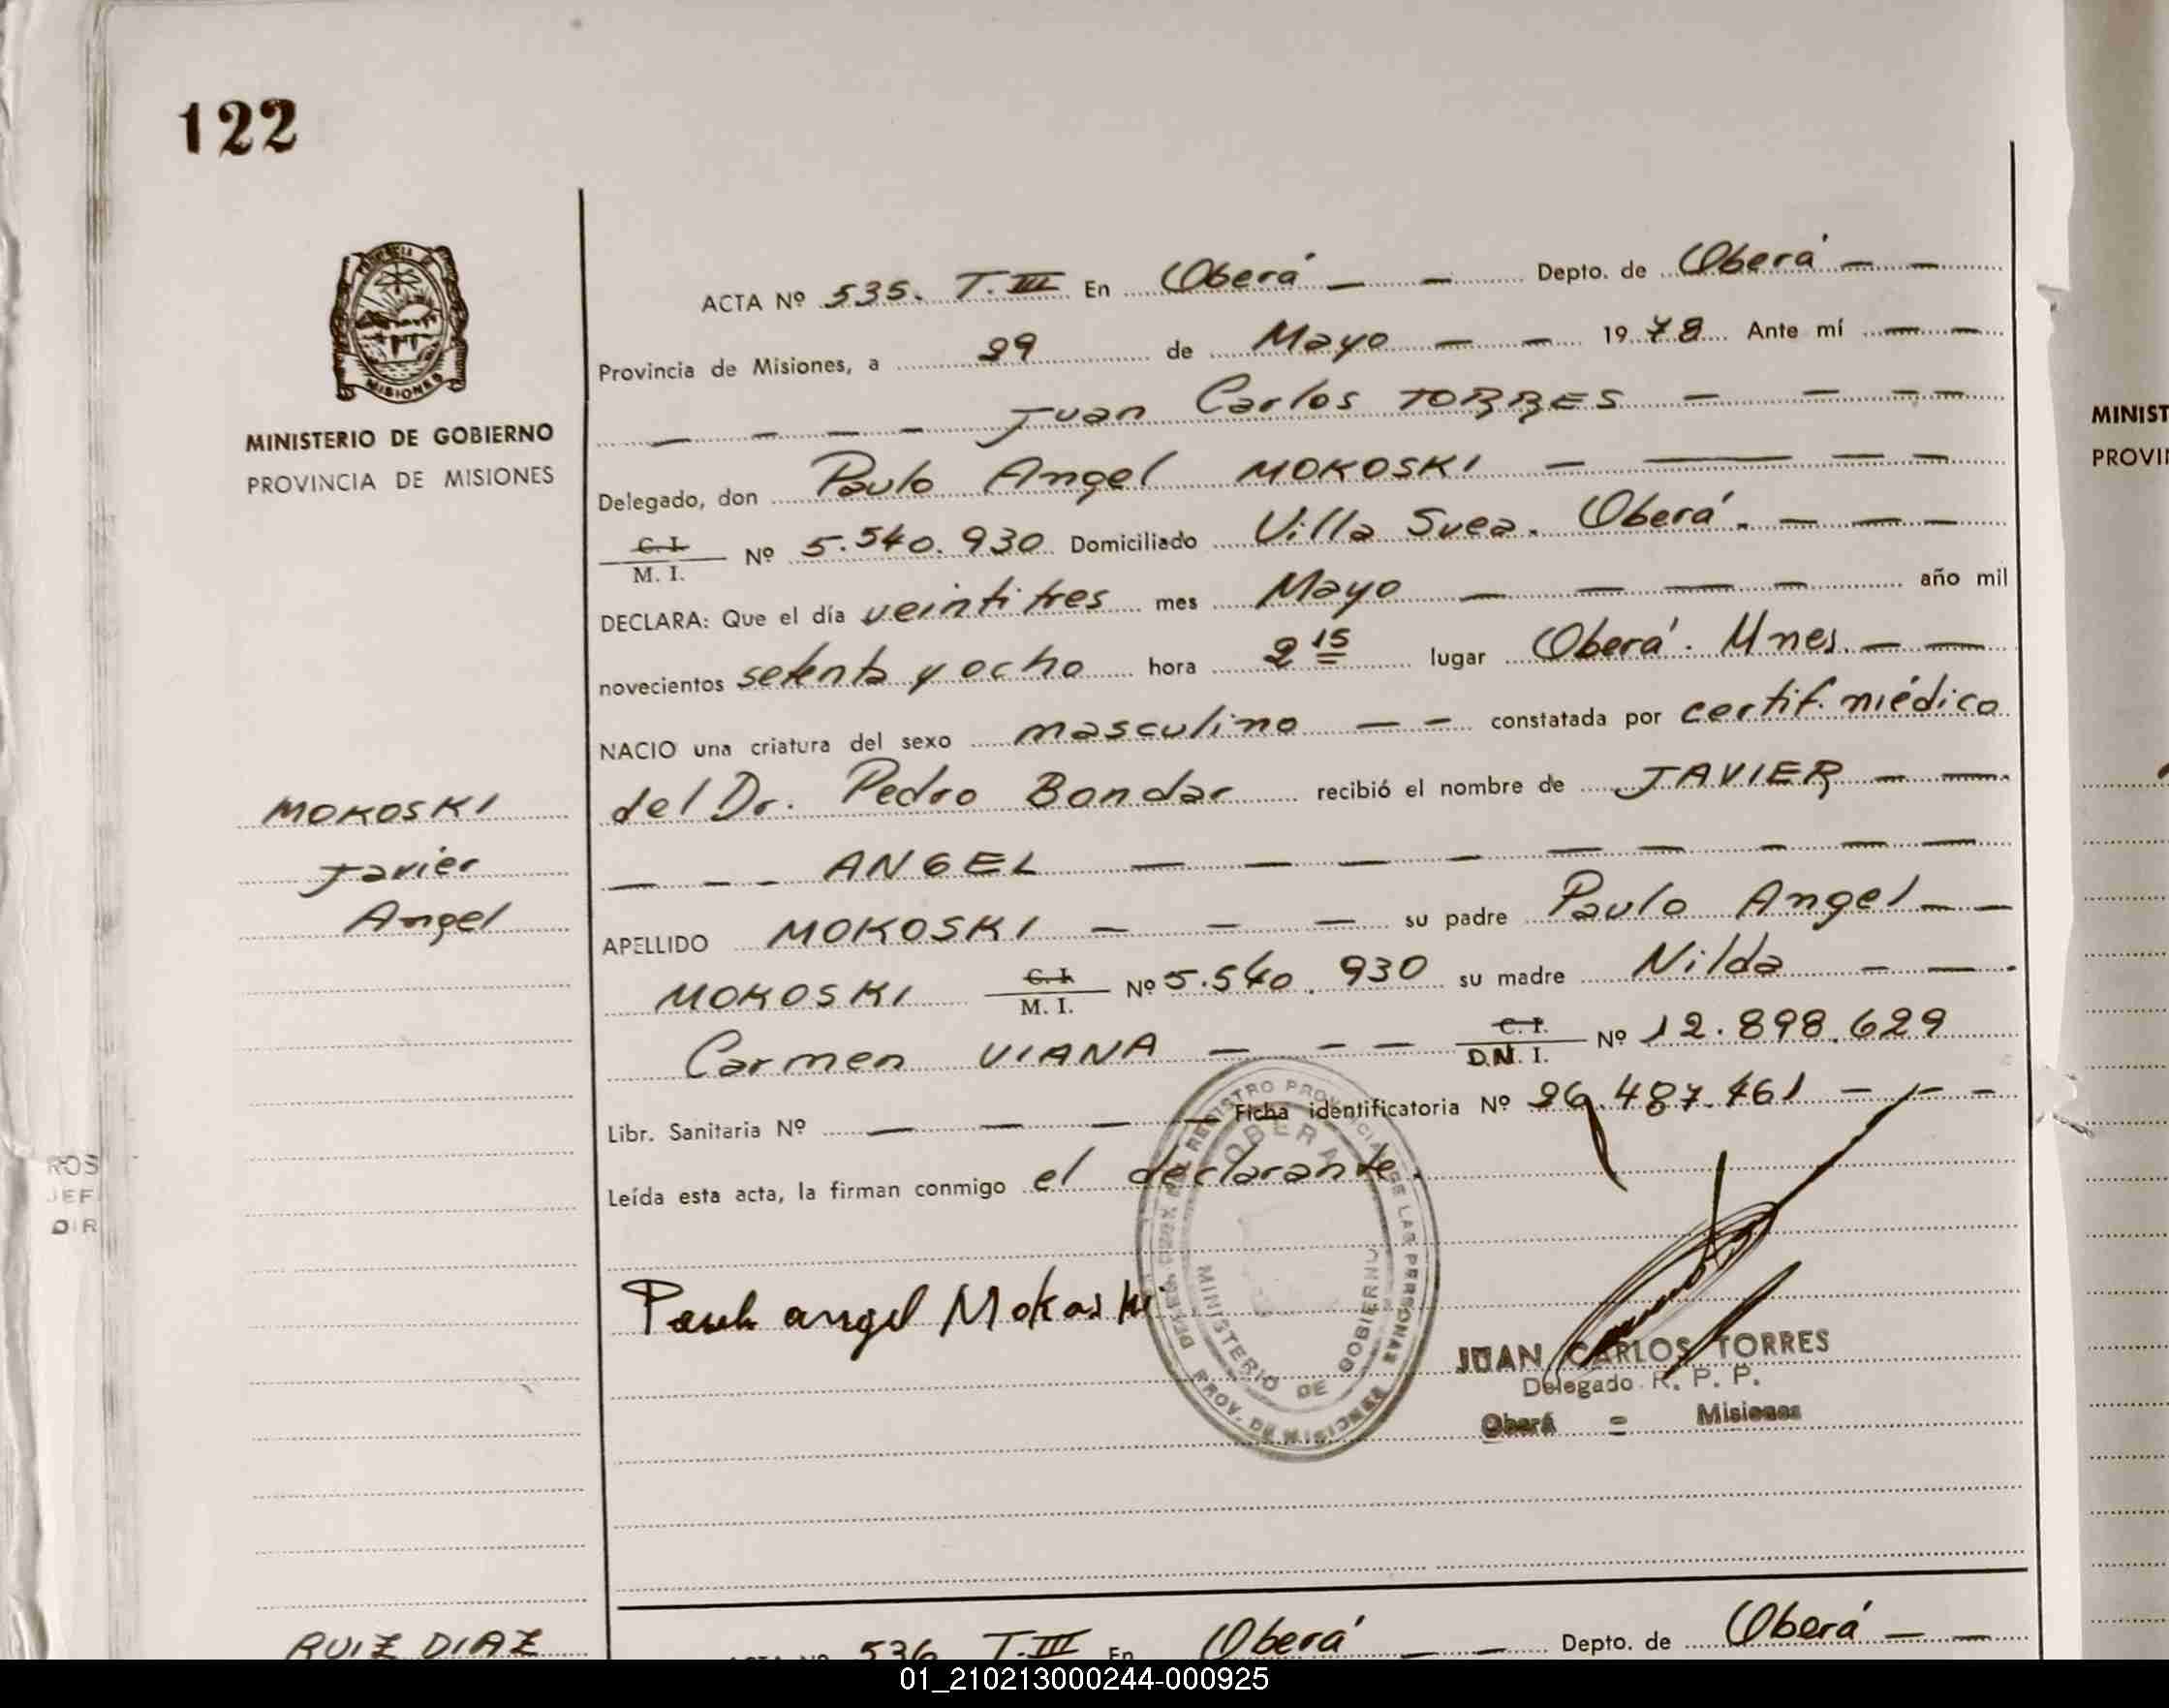 122
PROVINCIA DE
MISIONES
MINISTERIO DE GOBIERNO
PROVINCIA DE MISIONES
MOKOSKI
Javier
Angel
ACTA Nº 535. T. III En Oberá — — Depto. de Oberá — —
Provincia de Misiones, a 29 de Mayo — — 1978 Ante mí — —
— — — — Juan Carlos TORRES — — — —
Delegado, don Paulo Angel MOKOSKI — — — —
C. I.
M. I. Nº 5.540.930 Domiciliado Villa Svea. Oberá. — — —
DECLARA: Que el día veintitres mes Mayo — — — — año mil
novecientos setenta y ocho hora 2 15 lugar Oberá. Mnes. — —
NACIO una criatura del sexo masculino — — constatada por certif. médico
del Dr. Pedro Bondar recibió el nombre de JAVIER — —
— — — ANGEL — — — — — — — — —
APELLIDO MOKOSKI — — — su padre Paulo Angel — —
MOKOSKI C. I. M. I. Nº 5.540.930 su madre Nilda — —
Carmen VIANA — — — C. I. D.N. I. Nº 12.898.629
Libr. Sanitaria Nº — — — — Ficha identificatoria Nº 26.487.461 — — —
Leída esta acta, la firman conmigo el declarante.
REGISTRO PROVINCIAL DE LAS PERSONAS
OBERA
MINISTERIO DE GOBIERNO
PROV. DE MISIONES
angel
JUAN CARLOS TORRES
Delegado R. P. P.
Oberá - Misiones
RUIZ DIAZ
536 T. III En Oberá — — Depto. de Oberá — —
ROS
JEF
DIR
MINIST
PROVI
01_210213000244-000925